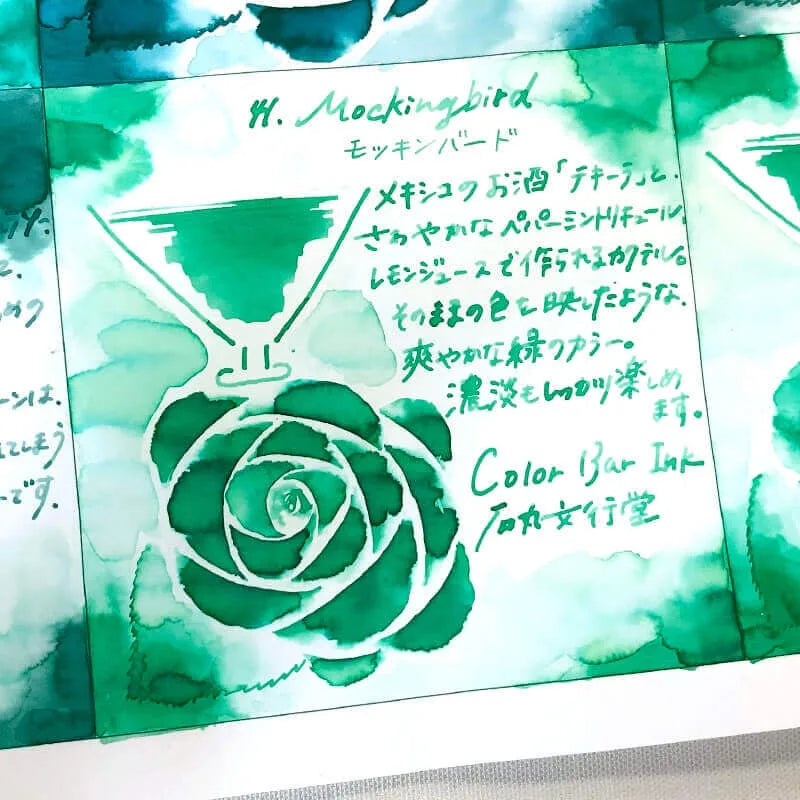 41. Mockingbird
モッキンバード
メキシコのお酒「テキーラ」と、
さわやかなペパーミントリキュール、
レモンジュースで作られるカクテル。
そのままの色を映したような、
爽やかな緑のカラー。
濃淡もしっかり楽しめ
ます。
Color Bar Ink
石丸文行堂
ーンは、
てしまう
ーです。